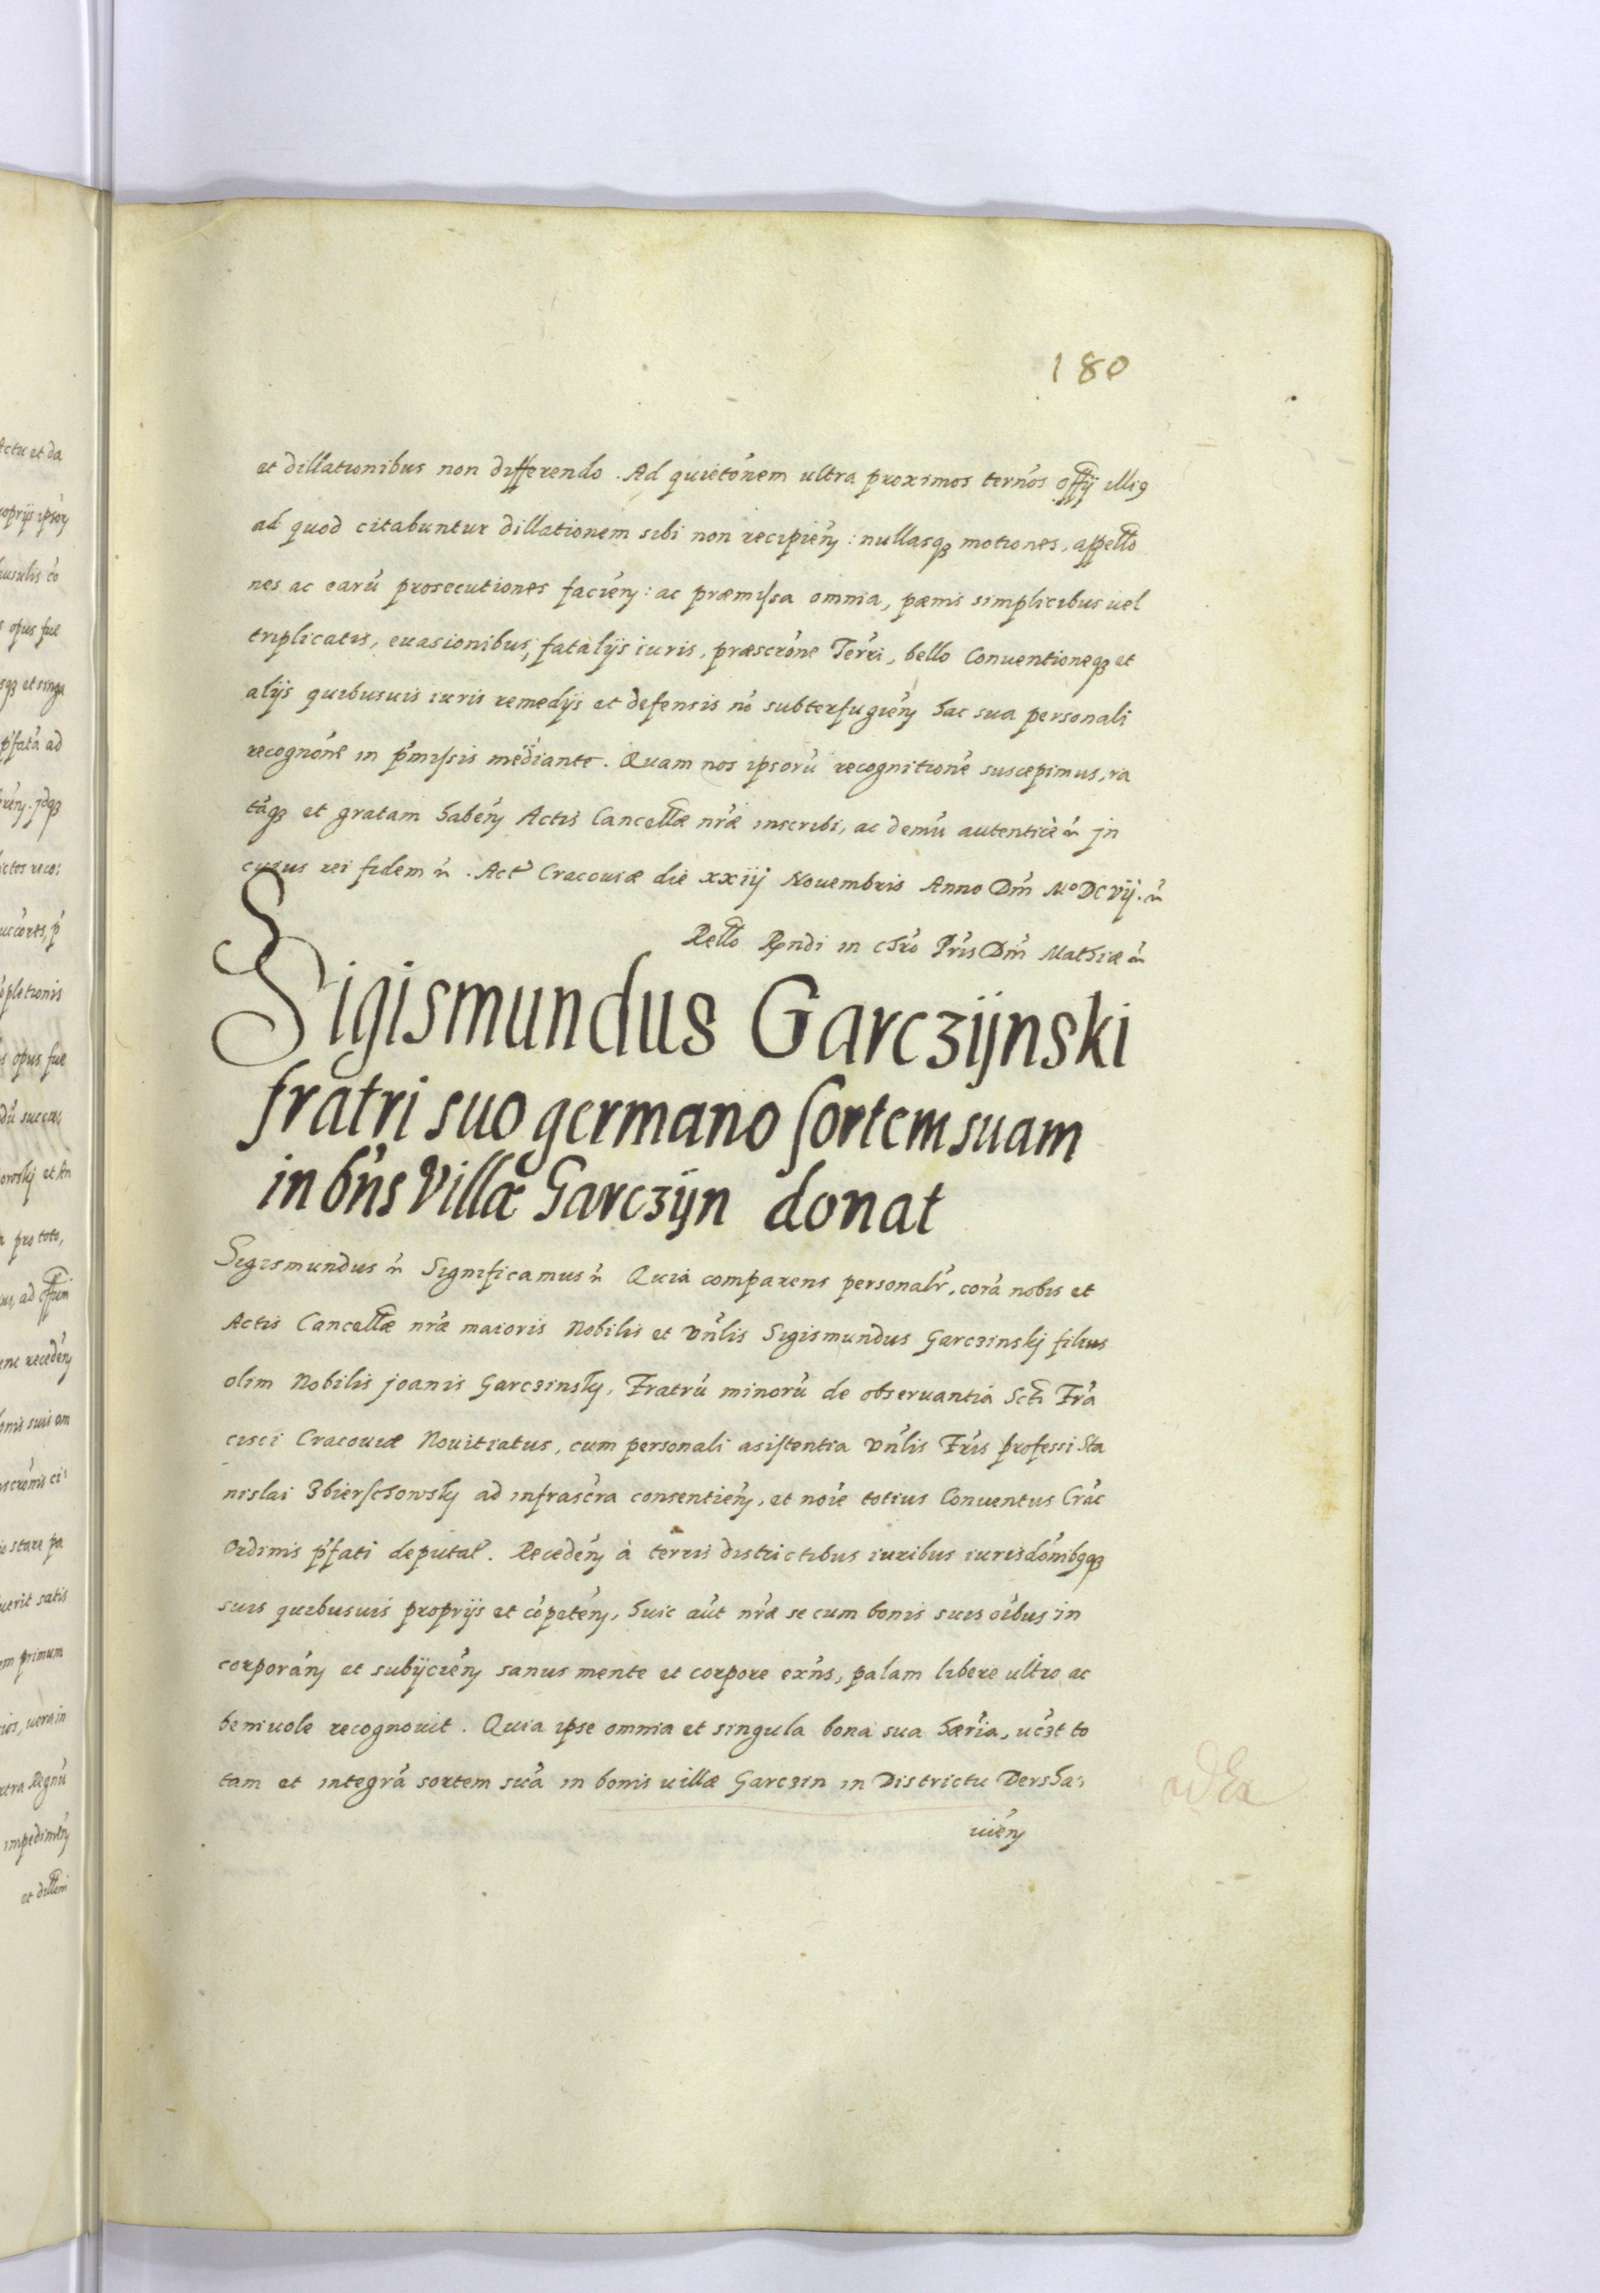 180
et dillationibus non differendo. Ad quietōnem ultra proximos ternōs offȳ illiꝯ
ad quod citabuntur dillationem sibi non recipien̄: nullasqꝫ motiones, appello
nes ac earū prosecutiones facien̄: ac præmissa omnia, pœnis simplicibus uel
triplicatis, euasionibus, fatalijs iuris, præscrōne Terrī, bello Conuentioneqꝫ et
alijs quibusuis iuris remedijs et defensis nō subterfugien̄ hac sua personali
recognōne in p̄missis mediante. Quam nos ipsorū recognitionē suscepimus, ra
tāqꝫ et gratam haben̄ Actis Cancellæ nr̄æ inscribi, ac demū autenticè r̄ jn
cuius rei fidem r̄. Act̄ Cracouiæ die xxiij Nouembris Anno Dn̄i Mº DC vij. r̄
Rello Rn̄di in chr̄o Pr̄is Dn̄i Mathiæ r̄
Sigismundus Garcziinski
fratri suo germano sortem suam
in bn̄s Villæ Garczijn donat
Sigismundus r̄ Significamus r̄ Quia comparens personalr̄, corā nobis et
Actis Cancellæ nr̄æ maioris Nobilis et Vn̄lis Sigismundus Garczinskj filius
olim Nobilis joanis Garczinsky, Fratrū minorū de obseruantia Sctī Frā
cisci Cracouiæ Nouitiatus, cum personali asistentia Vn̄lis Fr̄is professi Sta
nislai Zbierschowsky ad infrascr̄a consentien̄, et noīe totius Conuentus Crāc
Ordinis p̄fati deputat̄. Receden̄ à terris districtibus iuribus iurisdōnibꝯqꝫ
suis quibusuis proprijs et cōpeten̄, huic aūt nr̄æ se cum bonis suis oībus in
corporan̄ et subijcien̄ sanus mente et corpore exn̄s, palam libere ultro ac
beniuole recognouit. Quia ipse omnia et singula bona sua hær̄ia, uc̄zt to
tam et integrā sortem suā in bonis uillæ Garczin in Districtu Dersha:
uien̄